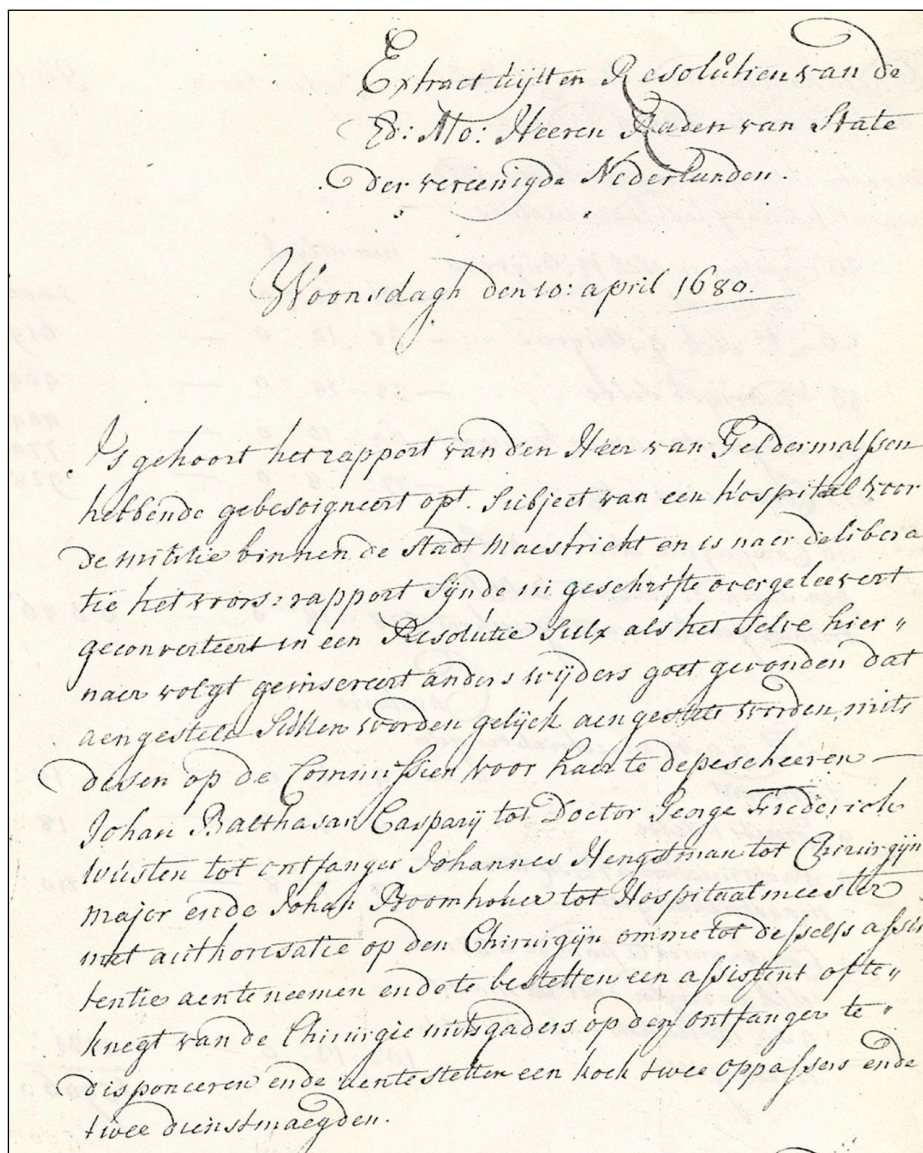 Extract uijtten Resolutien van de
Ed: Mo: Heeren Raden van State
der vereenigde Nederlanden.
Woonsdagh den 10: april 1680.
Is gehoort het rapport van den Heer van Geldermalssen
hebbende gebesoigneert opt. Subject van een Hospitael voor
de militie binnen de stadt Maestricht en is naer delibera
tie het voors: rapport sijnde in geschrifte overgeleevert
geconverteert in een Resolutie Sulx als het selve hier„
naer volgt geinsereert anders wijders goet gevonden dat
aengestelt sullen worden gelijck aengestelt worden, mits
desen op de Commissien voor haer te depescheeren —
Johan Balthasar Casparij tot Doctor George Frederick
Wüsten tot ontfanger Johannes Hengstman tot Chirurgijn
major ende Johan Boomhoker tot Hospitaalmeester
met authorisatie op den Chirurgijn omme tot desselfs assis
tentie aenteneemen ende te bestellen een assistent ofte„
knegt van de Chirurgie mitsgaders op den ontfanger te„
disponeeren ende aentestellen een kock twee oppassers ende
twee dienstmaegden.